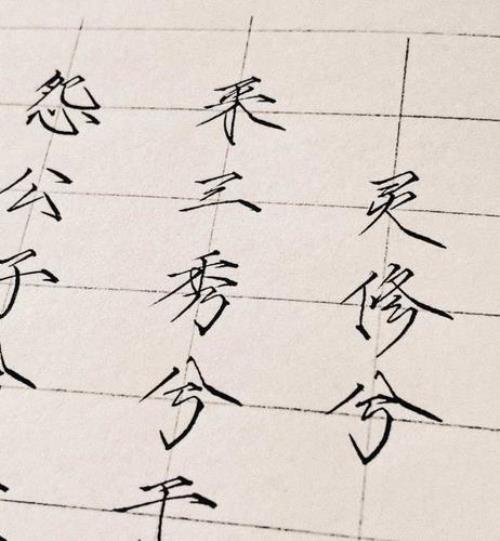 灵修兮
采三秀兮于
怨公子